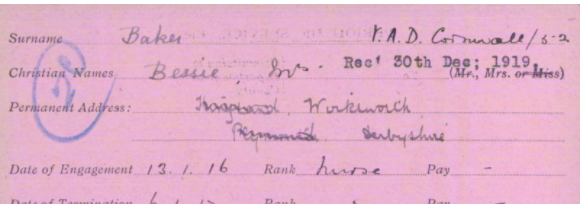 Surname Baker V.A.D. Cornwall/52
Christian Names Bessie Mrs. Rec' 30th Dec; 1919.
(Mr., Mrs. or Miss)
Permanent Address: Kingsand, Workiworth,
Plymouth Derbyshire
Date of Engagement 13.1.16 Rank Nurse Pay -
Date of Termination Rank Pay